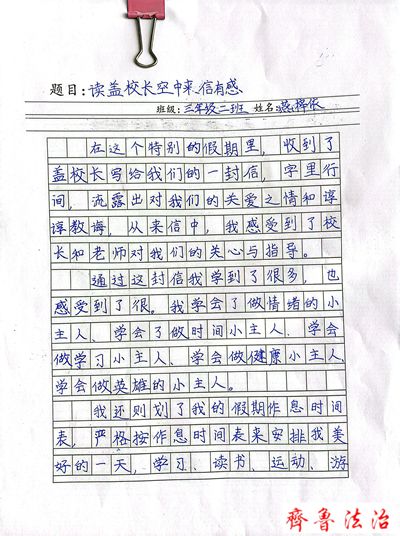 题目：读盖校长空中来信有感
班级：三年级二班 姓名：
在这个特别的假期里，收到了
盖校长写给我们的一封信，字里行
间，流露出对我们的关爱之情和谆
谆教诲，从来信中，我感受到了校
长和老师对我们的关心与指导。
通过这封信我学到了很多，也
感受到了很。我学会了做情绪的小
主人、学会了做时间小主人、学会
做学习小主人、学会做健康小主人、
学会做英雄的小主人。
我还则划了我的假期作息时间
表，严格按作息时间表来安排我美
好的一天，学习、读书、运动、游
齊鲁法治